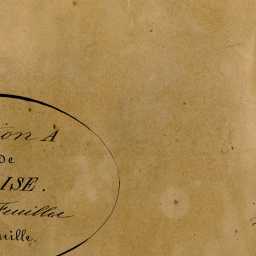 ion A
De
ISE.
Feuille
uille.